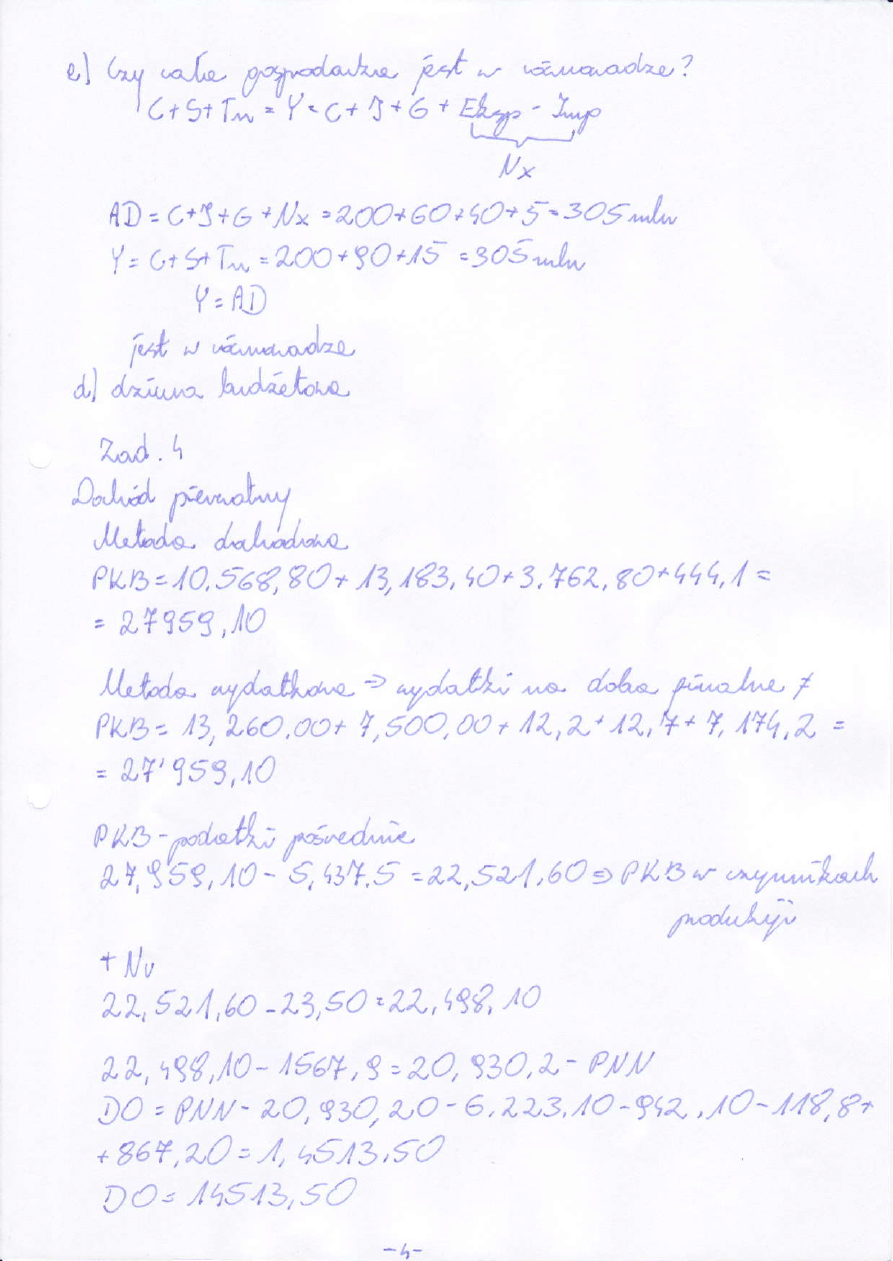 e) Czy cała gospodarka jest w równowadze?
C+S+Tn = Y = C+J+G + Eksp - Imp
Nx
AD = C+J+G+Nx = 200+60+40+5 = 305 mln
Y = C+S+Tn = 200+90+15 = 305 mln
Y = AD
jest w równowadze
d) dziura budżetowa
Zad. 4
Dochód pierwotny
Metoda dochodowa
PKB = 10.568,80 + 13,183,40 + 3.762,80 + 444,1 =
= 27959,10
Metoda wydatkowa => wydatki na dobra finalne
PKB = 13,260.00 + 7,500,00 + 12,2 + 12,7 + 7,174,2 =
= 27'959,10
PKB - podatki pośrednie
27,959,10 - 5,437,5 = 22,521,60 => PKB w czynnikach
produkcji
22,521,60 - 23,50 = 22,498,10
22,498,10 - 1567,9 = 20,930,2 - PNN
DO = PNN - 20,930,20 - 6.223.10 - 942,10 - 118,8 +
+ 867,20 = 1,4513,50
DO = 14513,50
-4-